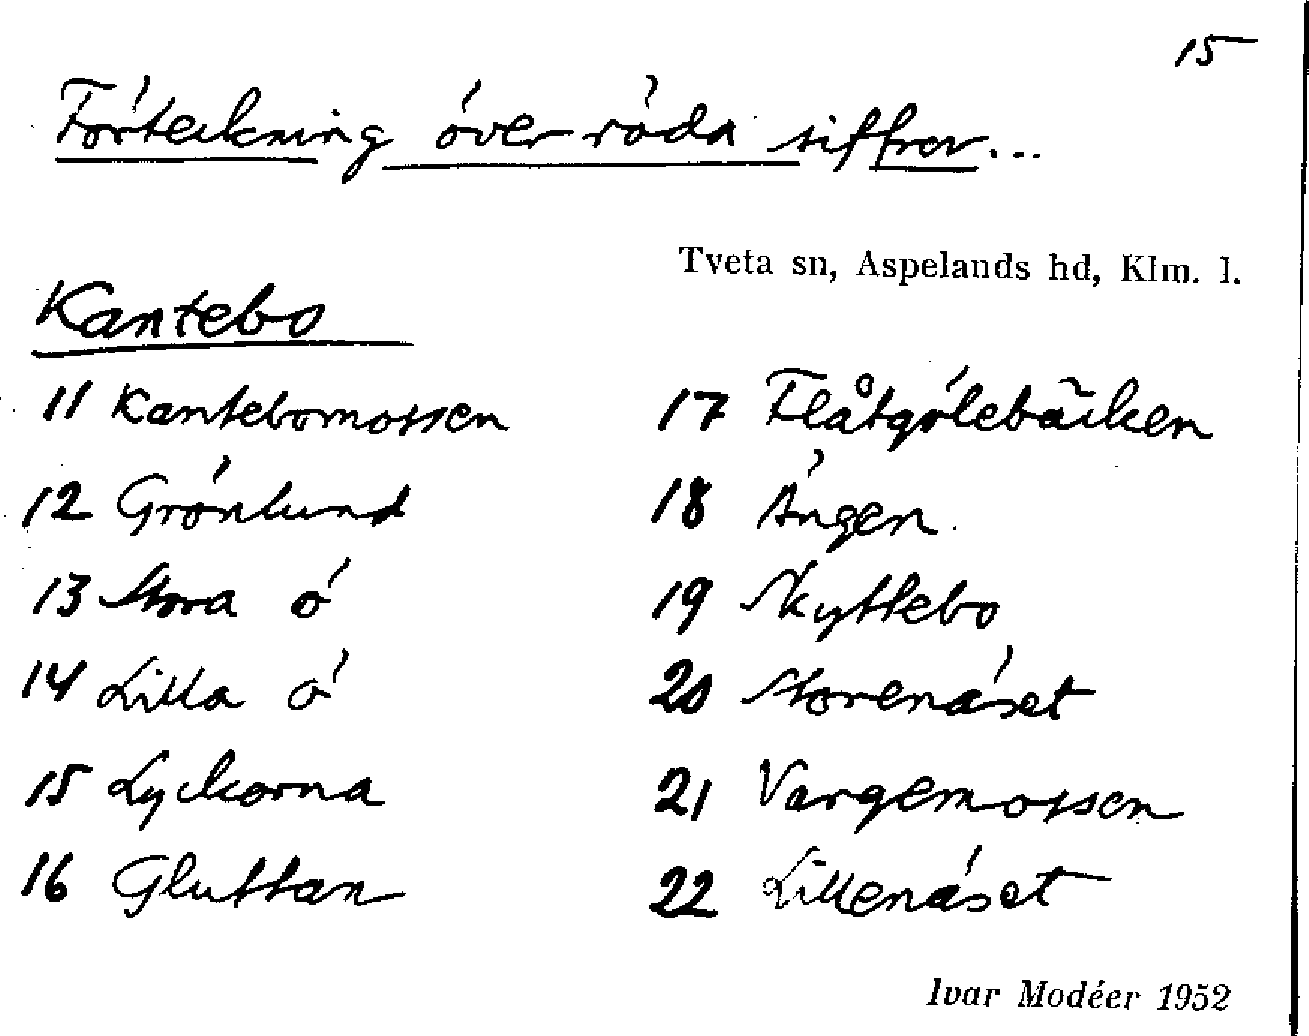 15
Förteckning över röda siffror...
Tveta sn, Aspelands hd, Klm. l.
Kantebo
11 Kantebomossen
12 Grönlund
13 Stora ö
14 Lilla ö
15 Lyckorna
16 Gluttan
17 Flåtgölebäcken
18 Ängen
19 Skyttebo
20 Storenäset
21 Vargemossen
22 Lillenäset
Ivar Modéer 1952